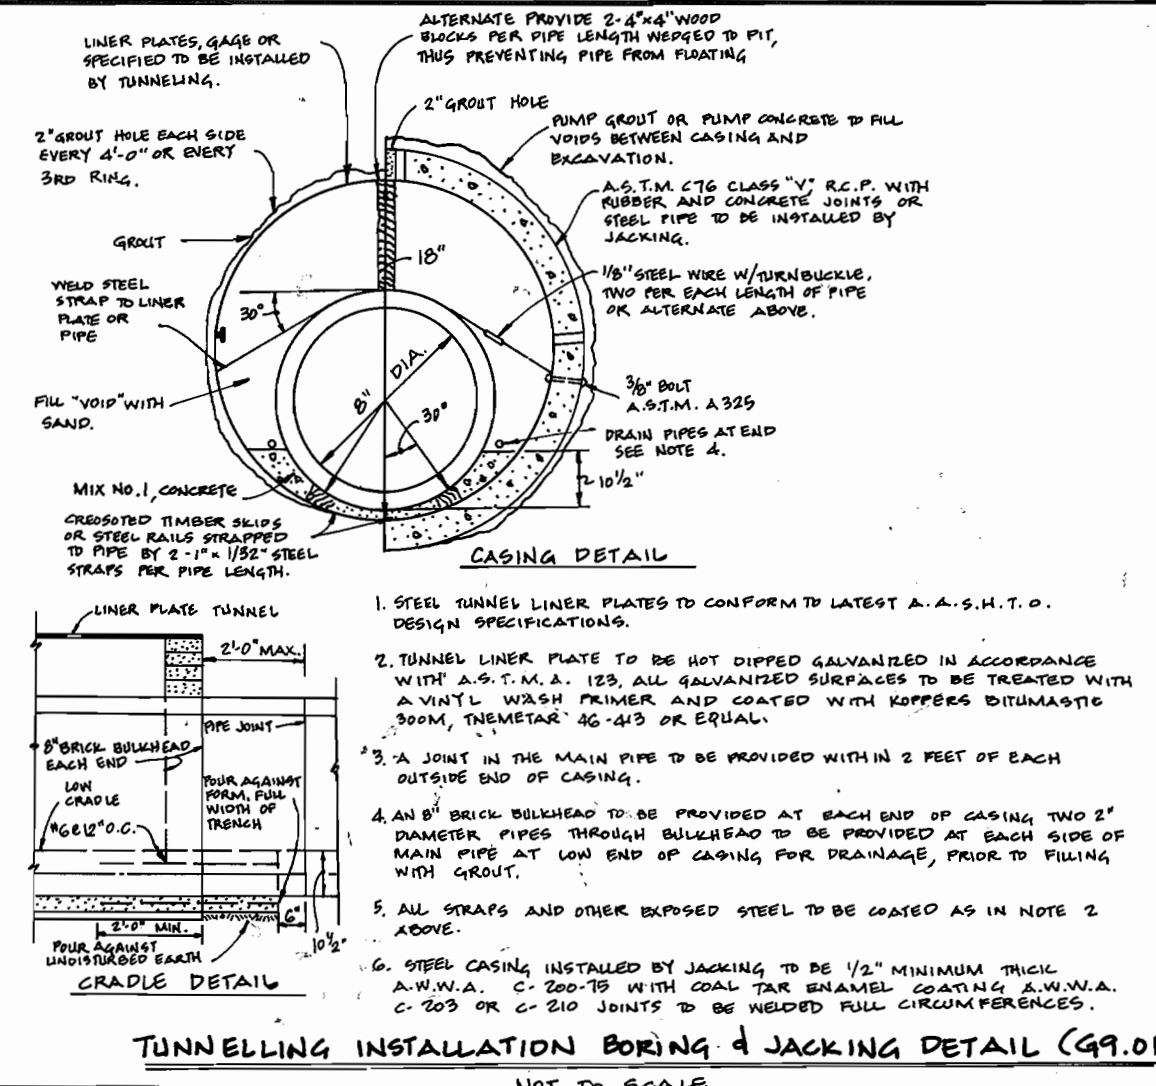 ALTERNATE PROVIDE 2-4"x4" WOOD
BLOCKS PER PIPE LENGTH WEDGED TO FIT,
THUS PREVENTING PIPE FROM FLOATING
LINER PLATES, GAGE OR
SPECIFIED TO BE INSTALLED
BY TUNNELING.
2" GROUT HOLE
PUMP GROUT OR PUMP CONCRETE TO FILL
VOIDS BETWEEN CASING AND
EXCAVATION.
2" GROUT HOLE EACH SIDE
EVERY 4'-0" OR EVERY
3RD RING.
A.S.T.M. C76 CLASS "V", R.C.P. WITH
RUBBER AND CONCRETE JOINTS OR
STEEL PIPE TO BE INSTALLED BY
JACKING.
GROUT
18"
WELD STEEL
STRAP TO LINER
PLATE OR
PIPE
30°
1/8" STEEL WIRE W/TURNBUCKLE,
TWO PER EACH LENGTH OF PIPE
OR ALTERNATE ABOVE.
8" DIA.
30°
3/8" BOLT
A.S.T.M. A325
FILL "VOID" WITH
SAND.
DRAIN PIPES AT END
SEE NOTE 4.
10 1/2"
MIX NO.1, CONCRETE
CREOSOTED TIMBER SKIDS
OR STEEL RAILS STRAPPED
TO PIPE BY 2-1" x 1/32" STEEL
STRAPS PER PIPE LENGTH.
CASING DETAIL
LINER PLATE TUNNEL
2'-0" MAX.
PIPE JOINT
8" BRICK BULKHEAD
EACH END
LOW
CRADLE
#6@12" O.C.
POUR AGAINST
FORM, FULL
WIDTH OF
TRENCH
2'-0" MIN.
6"
10 1/2"
POUR AGAINST
UNDISTURBED EARTH
CRADLE DETAIL
1. STEEL TUNNEL LINER PLATES TO CONFORM TO LATEST A.A.S.H.T.O.
DESIGN SPECIFICATIONS.
2. TUNNEL LINER PLATE TO BE HOT DIPPED GALVANIZED IN ACCORDANCE
WITH A.S.T.M.A. 123, ALL GALVANIZED SURFACES TO BE TREATED WITH
A VINYL WASH PRIMER AND COATED WITH KOPPERS BITUMASTIC
300M, TNEMETAR 46-413 OR EQUAL.
3. A JOINT IN THE MAIN PIPE TO BE PROVIDED WITHIN 2 FEET OF EACH
OUTSIDE END OF CASING.
4. AN 8" BRICK BULKHEAD TO BE PROVIDED AT EACH END OF CASING TWO 2"
DIAMETER PIPES THROUGH BULKHEAD TO BE PROVIDED AT EACH SIDE OF
MAIN PIPE AT LOW END OF CASING FOR DRAINAGE, PRIOR TO FILLING
WITH GROUT.
5. ALL STRAPS AND OTHER EXPOSED STEEL TO BE COATED AS IN NOTE 2
ABOVE.
6. STEEL CASING INSTALLED BY JACKING TO BE 1/2" MINIMUM THICK
A.W.W.A. C-200-75 WITH COAL TAR ENAMEL COATING A.W.W.A.
C-203 OR C-210 JOINTS TO BE WELDED FULL CIRCUMFERENCES.
TUNNELLING INSTALLATION BORING & JACKING DETAIL (G9.01
NOT TO SCALE